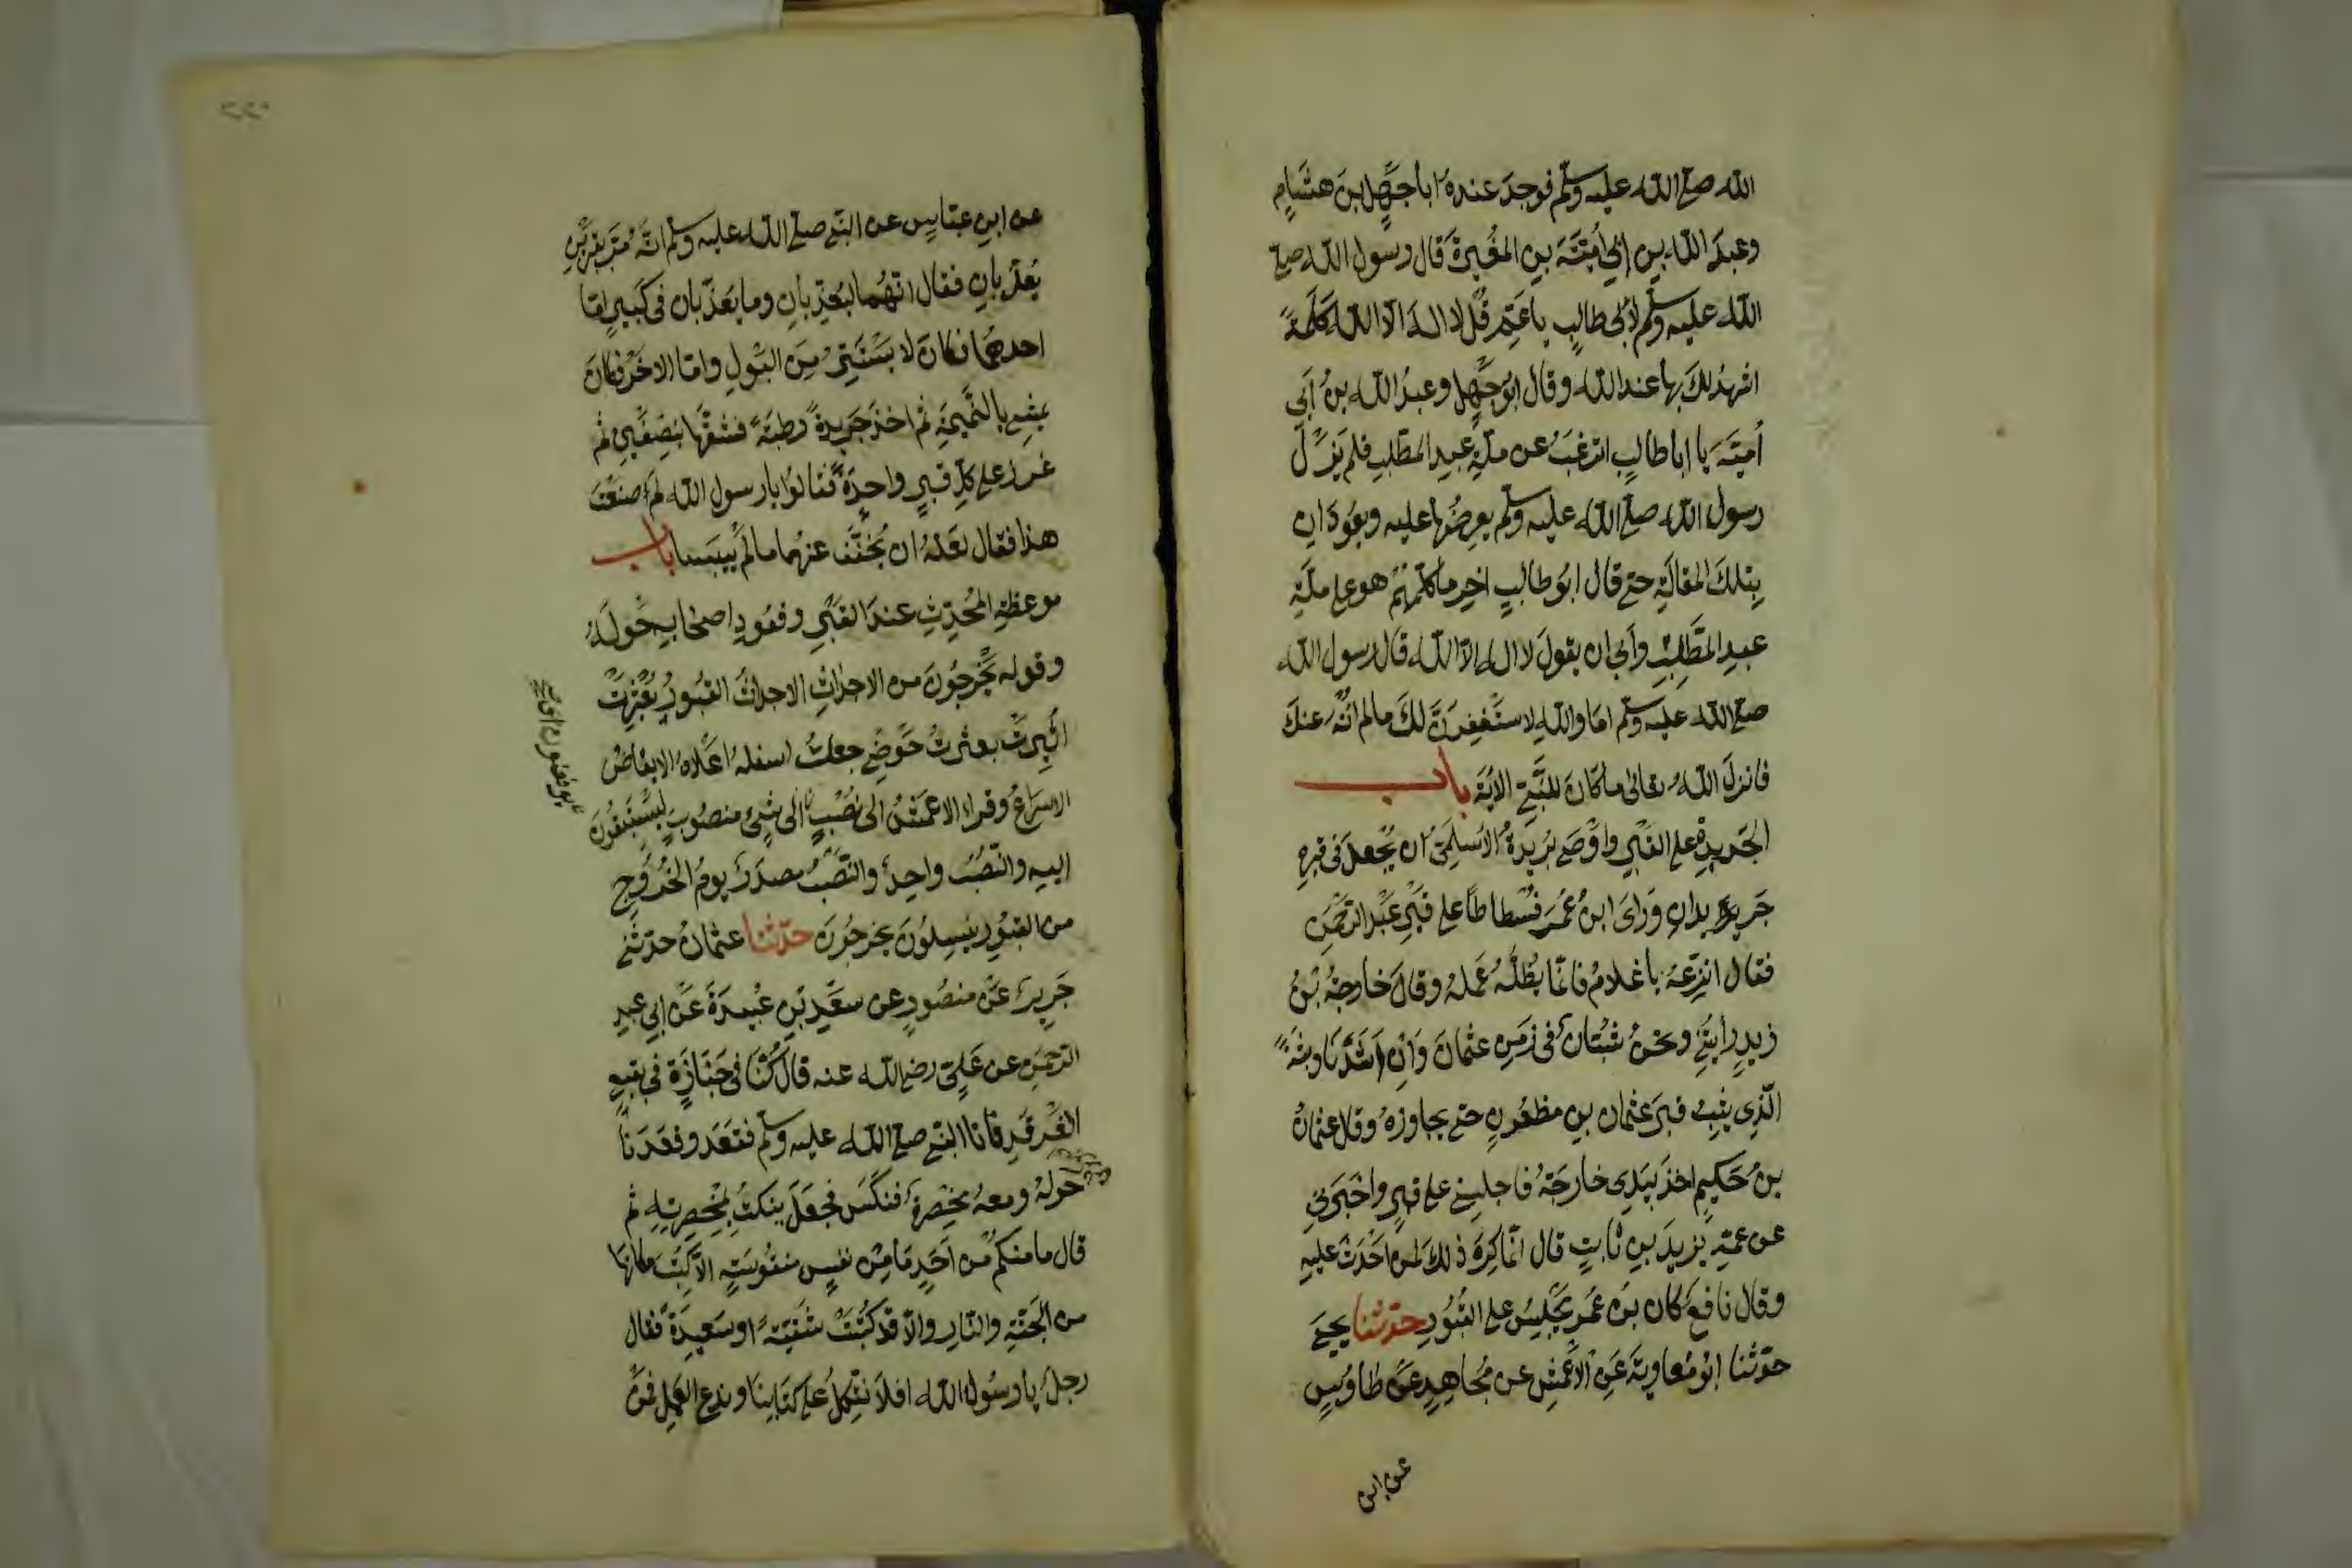 الله صلى الله عليه وسلم فوجد عنده ابا جهل بن هشام
وعبد الله بن ابي امية بن المغيرة قال رسول الله صلى
الله عليه وسلم لابي طالب يا عم قل لا اله الا الله كلمة
اشهد لك بها عند الله وقال ابو جهل وعبد الله بن ابي
امية يا ابا طالب اترغب عن ملة عبد المطلب فلم يزل
رسول الله صلى الله عليه وسلم يعرضها عليه ويعودان
بتلك المقالة حتى قال ابو طالب اخر ما كلمهم هو على ملة
عبد المطلب وابى ان يقول لا اله الا الله قال رسول الله
صلى الله عليه وسلم اما والله لاستغفرن لك ما لم انه عنك
فانزل الله تعالى ما كان للنبي الاية باب
الجريدة على القبر واوصى بريدة الاسلمي ان يجعل في قبره
جريدان وراى ابن عمر فسطاطا على قبر عبد الرحمن
فقال انزعه يا غلام فانما يظله عمله وقال خارجة بن
زيد رايتني ونحن شبان في زمن عثمان وان اشدنا وثبة
الذي يثب قبر عثمان بن مظعون حتى يجاوزه وقال عثمان
بن حكيم اخذ بيدي خارجة فاجلسني على قبر واخبرني
عن عمه يزيد بن ثابت قال انما كره ذلك لمن احدث عليه
وقال نافع كان بن عمر يجلس على القبور حدثنا يحيى
حدثنا ابو معاوية عن الاعمش عن مجاهد عن طاوس
عن ابن
٢٢٠
عن ابن عباس عن النبي صلى الله عليه وسلم انه مر بقبرين
يعذبان فقال انهما ليعذبان وما يعذبان في كبير اما
احدهما فكان لا يستتر من البول واما الاخر فكان
يمشي بالنميمة ثم اخذ جريدة رطبة فشقها بنصفين ثم
غرز على كل قبر واحدة فقالوا يا رسول الله لم صنعت
هذا فقال لعله ان يخفف عنهما ما لم ييبسا باب
موعظة المحدث عند القبر وقعود اصحابه حوله
وقوله يخرجون من الاجداث الاجداث القبور بعثرت
اثيرت بعثرت حوضي جعلت اسفله اعلاه الايفاض
الاسراع وقراء الاعمش الى نصب الى شيء منصوب يستبقون
اليه والنصب واحد والنصب مصدر يوم الخروج
من القبور ينسلون يخرجون حدثنا عثمان حدثني
جرير عن منصور عن سعد بن عبيدة عن ابي عبد
الرحمن عن علي رضي الله عنه قال كنا في جنازة في بقيع
الغرقد فاتانا النبي صلى الله عليه وسلم فقعد وقعدنا
حوله ومعه مخصرة فنكس فجعل ينكت بمخصرته ثم
قال ما منكم من احد ما من نفس منفوسة الا كتب مكانها
من الجنة والنار والا قد كتبت شقية او سعيدة فقال
رجل يا رسول الله افلا نتكل على كتابنا وندع العمل فمن